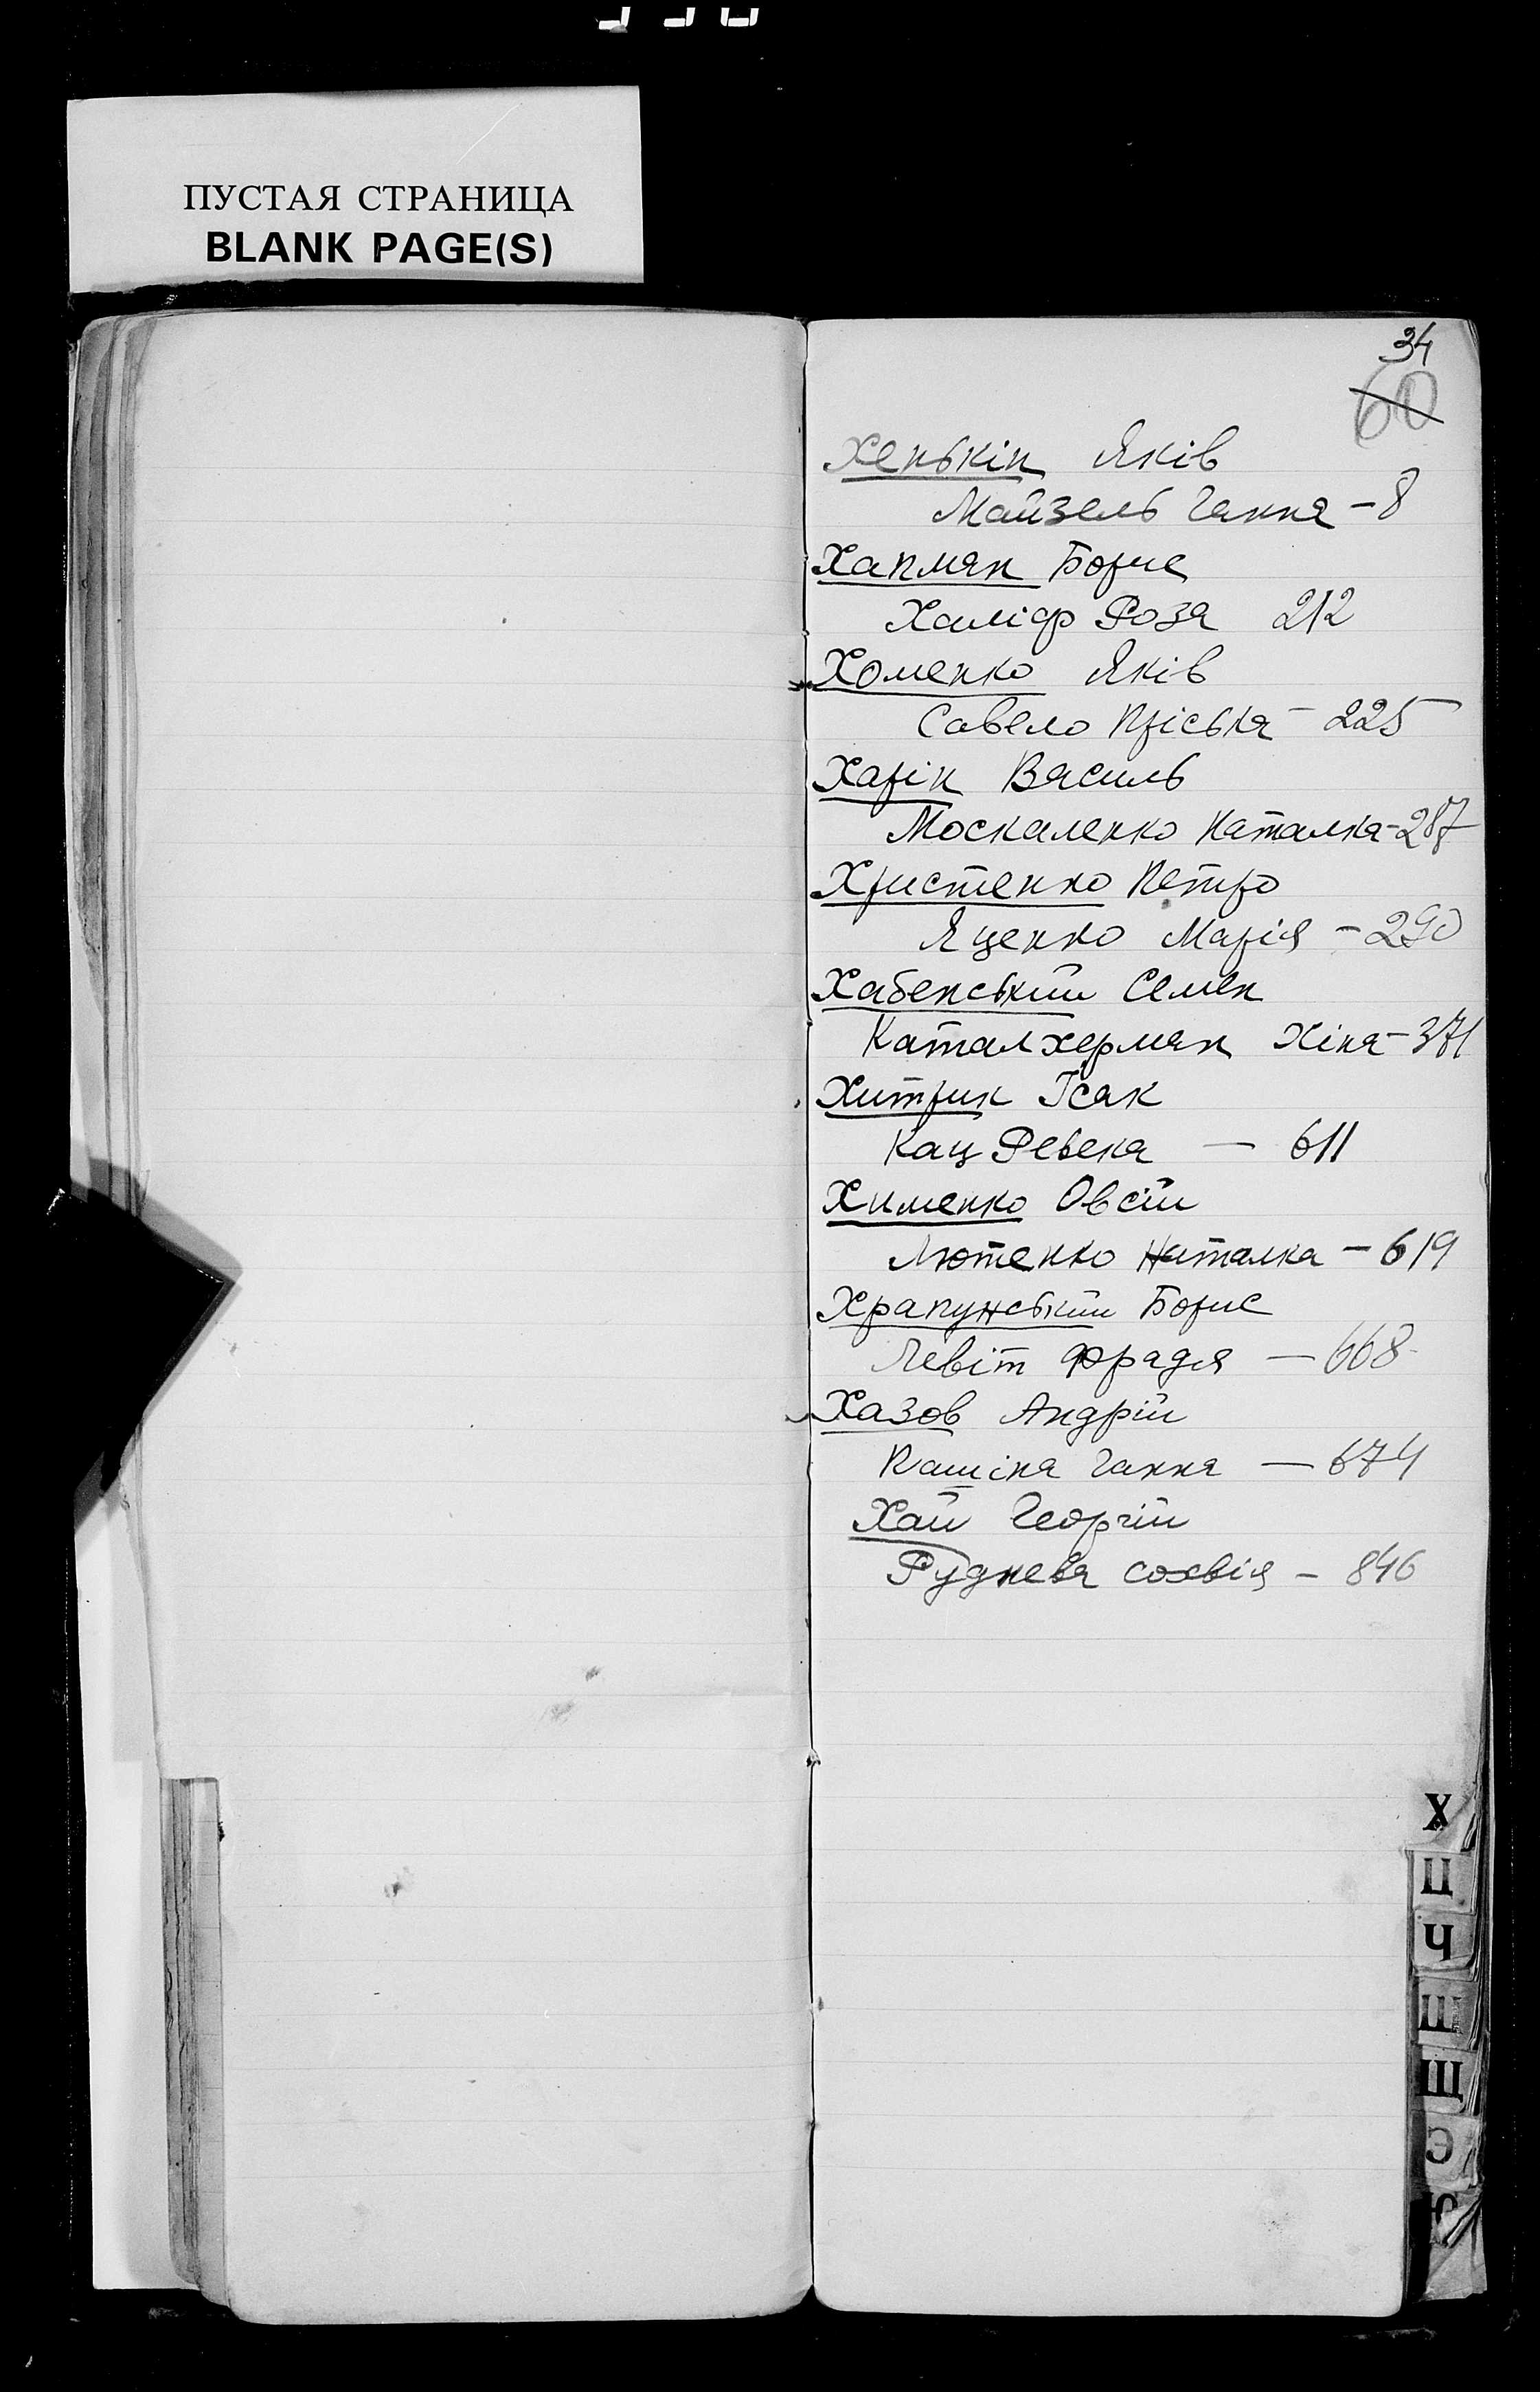 ПУСТАЯ СТРАНИЦА
BLANK PAGE(S)
34
60
Хенькін Яків
Майзель Ганна – 8
Хапман Борис
Халіф Роза 212
Хоменко Яків
Савело Пріська – 225
Харін Василь
Москаленко Наталка – 287
Христенко Петро
Яценко Марія – 290
Хабенський Семен
Каталхерман Хіня – 371
Хитрик Ісак
Кац Ревека — 611
Хименко Овсій
Лютенко Наталка – 619
Храпунський Борис
Левіт Фрадя — 668
Хазов Андрій
Пашіна Ганна — 674
Хай Георгій
Руднева Софія – 846
Х
Ц
Ч
Ш
Щ
Э
Ю